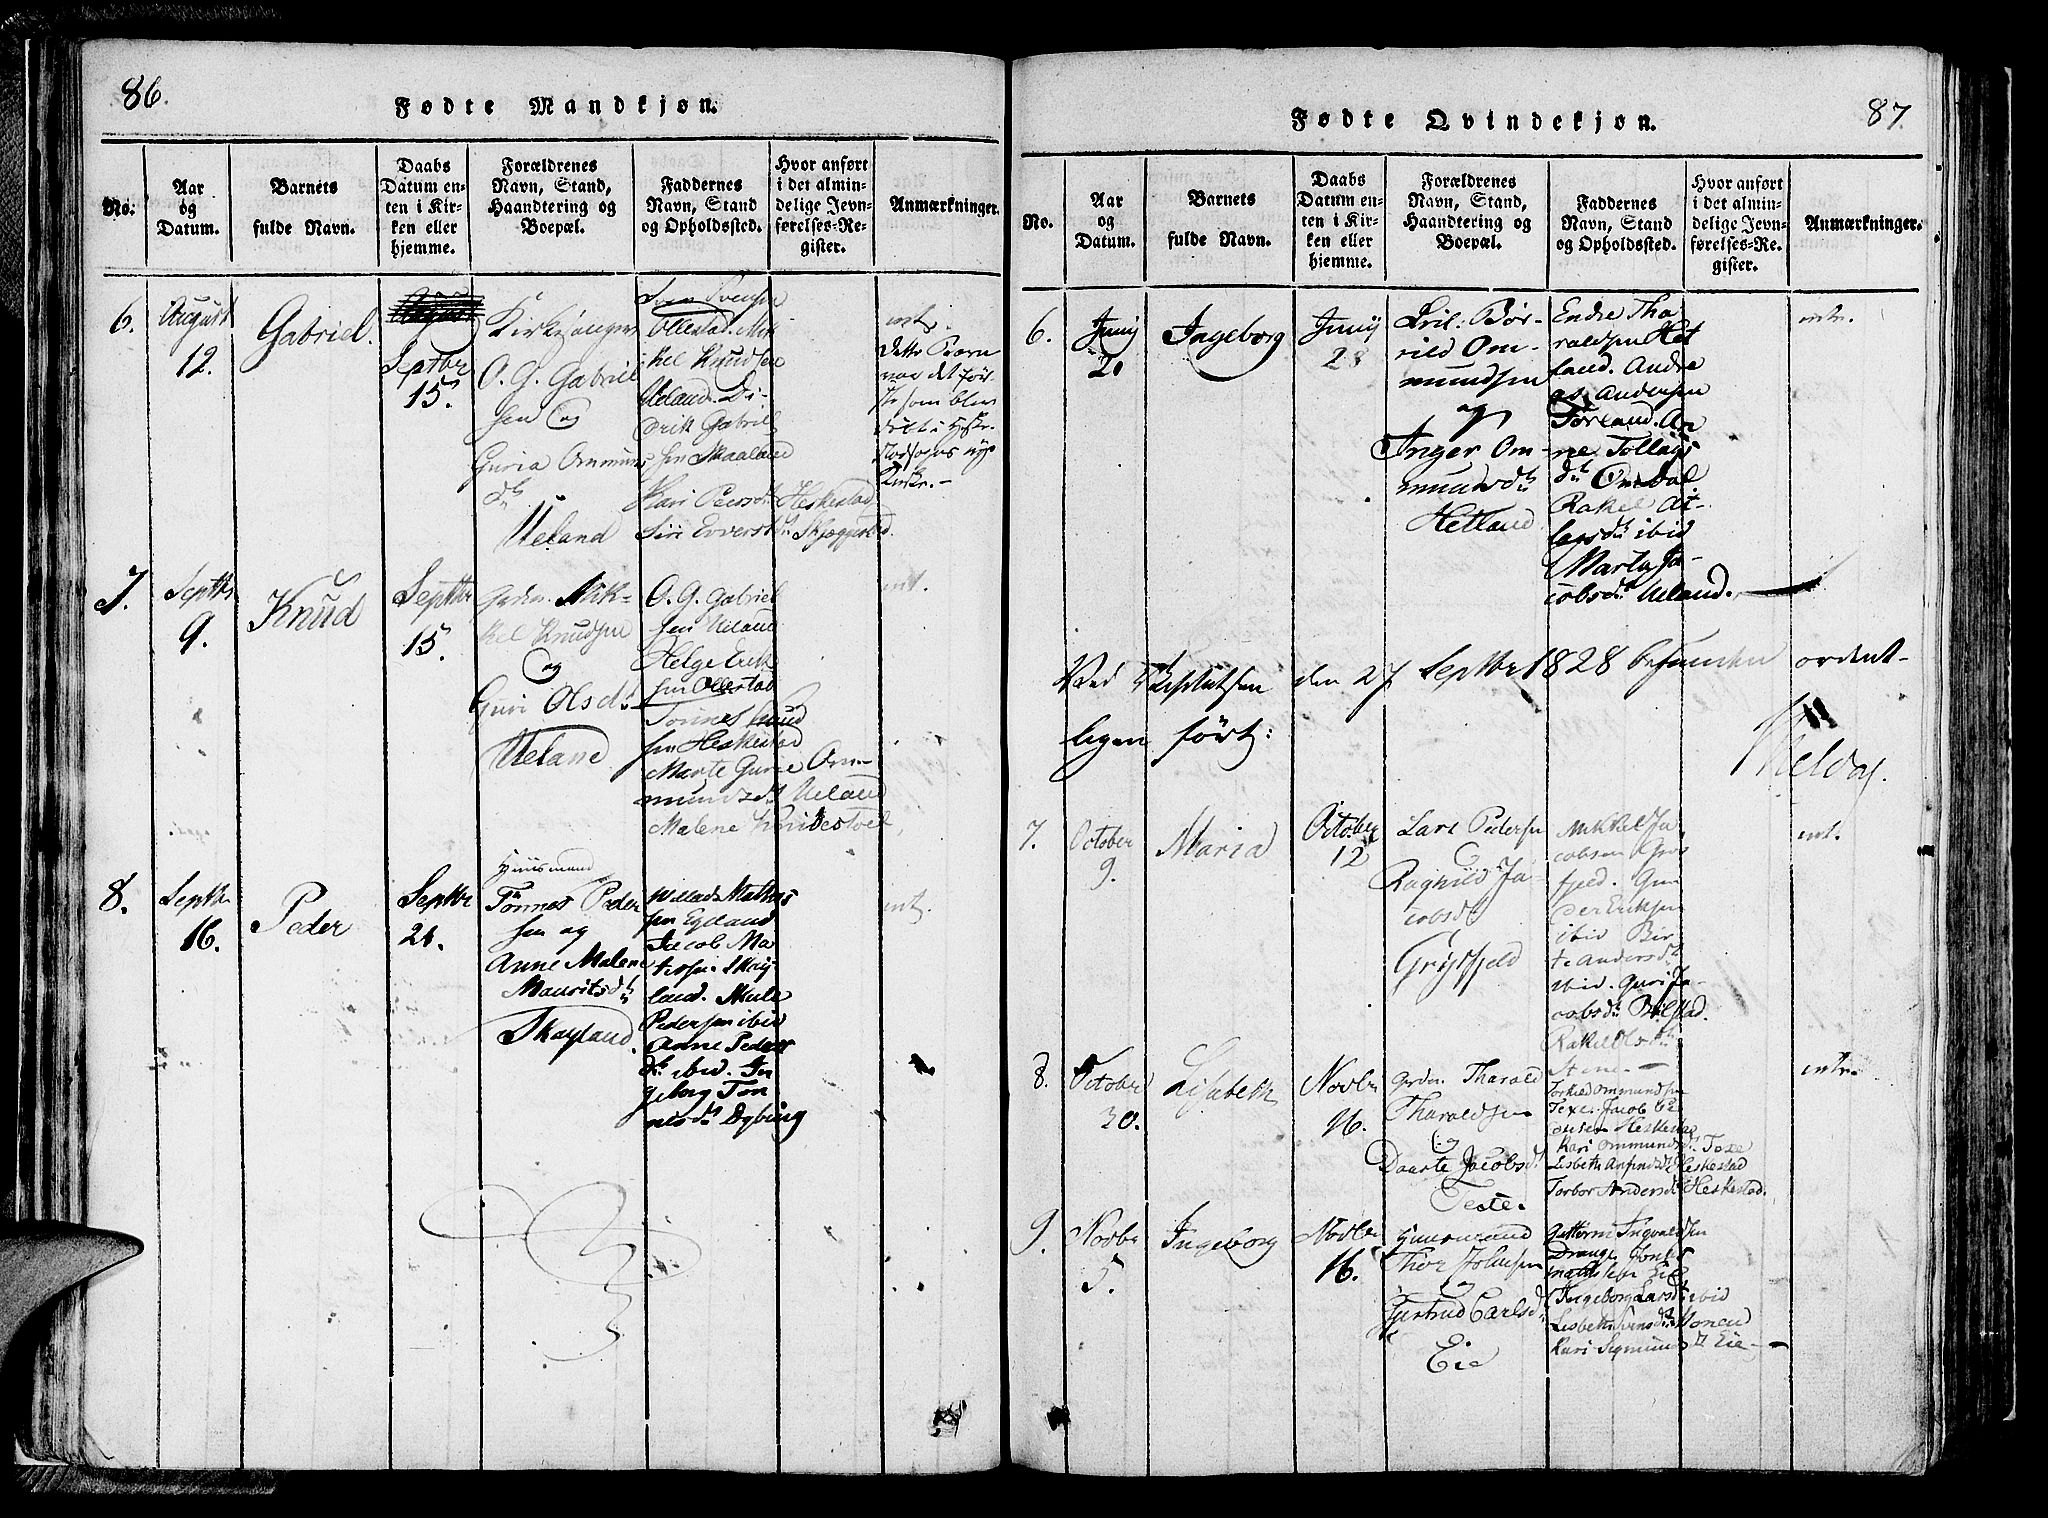 86.
Fødte Mandkjøn.
No.
Aar
og
Datum.
Barnets
fulde Navn.
Daabs
Datum en-
ten i Kir-
ken eller
hjemme.
Forældrenes
Navn, Stand,
Haandtering og
Boepæl.
Faddernes
Navn, Stand
og Opholdssted.
Hvor anført
i det almin-
delige Jevn-
førelses-Re-
gister.
Anmærkninger.
6.
August
12.
Gabriel.
Septbr
15.
Kirkesanger
O. G. Gabriel
sen og
Guria Ommuns
dtr
Ueland
Sven Svensen
Ollestad. Mik
kel Knudsen
Ueland. Di-
drik Gabriel
sen Skaaland
Kari Peersdtr Heskestad
Siri Evversdtr Skjeggestad.
intr.
Dette Barn
var det før
ste som blev
døbt i Heske-
stadsogns nye
Kirke.-
7.
Septbr
9.
Knud
Septbr
15.
Garder. Mik-
kel Knudsen
og
Guri Olsdtr
Ueland
O. G. Gabriel
sen Ueland
Helge Erik
sen Ollestad
Tønnes Knud
sen Heskestad
Marte Gurie Om-
mundsdtr Ueland
Malene
int.
8.
Septbr
16.
Peder
Septbr
21.
Huusmand
Tønnes Peder
sen og
Anne Malene
Mauritsdtr
Skayland.
Willads Mathis
sen Egeland
Jacob Ma
tissen Skay-
land. Mule
Pedersen ibid
Anne Peders
dtr ibid. In
geborg Tøn
nesdtr Dybing
int.
87.
Fødte Qvindekjøn.
No.
Aar
og
Datum.
Barnets
fulde Navn.
Daabs
Datum en-
ten i Kir-
ken eller
hjemme.
Forældrenes
Navn, Stand,
Haandtering og
Boepæl.
Faddernes
Navn, Stand
og Opholdssted.
Hvor anført
i det almin-
delige Jevn-
førelses-Re-
gister.
Anmærkninger.
6.
Junij
20
Ingeborg
Junij
28
Bør-
rild Om-
mundsen
og
Inger Om-
mundsdtr
Hetland
Endre Tha
raldsen Het
land. Andre
as Andersen
Tørland. An
ne Tollags
dtr Omdal
Rakel At-
lagsdtr ibid
Marta Ja-
cobsdtr Ueland.
intr.
Ved Visitatsen den 27 Septbr 1828 befunden ordent-
ligen ført:
7.
October
9.
Maria
October
12
Lars Pedersen
og
Ragnild Ja-
cobsdtr
Grøsfjeld
Mikkel Ja
cobsen Grøs
fjeld. Gun
der Eriksen
ibid Bir
te Andersdtr
ibid. Guri Ja-
cobsdtr Bilstad.
Rakel Olsdtr
Stene
int.
8.
October
30.
Lisabeth
Novbr
16.
Garder. Tharald
Tharaldsen
og
Daarte Jacobsdtr
Texe.
Torkild Ommundsen
Texe. Jacob
Heskestad
Kari Ommundsdtr Texe
Lisbeth Arfindsdtr Heskestad
Torbor Andersdtr Heskestad.
intr.
9.
Novbr
5.
Ingeborg
Novbr
16.
Huusmand
Thore Johnsen
og
Gertrud Carlsdtr
Eie
Guttorm Ingvaldsen
Drange Jonas
Eie
Ingeborg Larsdtr ibid
Lisbeth Svensdtr
Kari Sigmundsdtr Eie